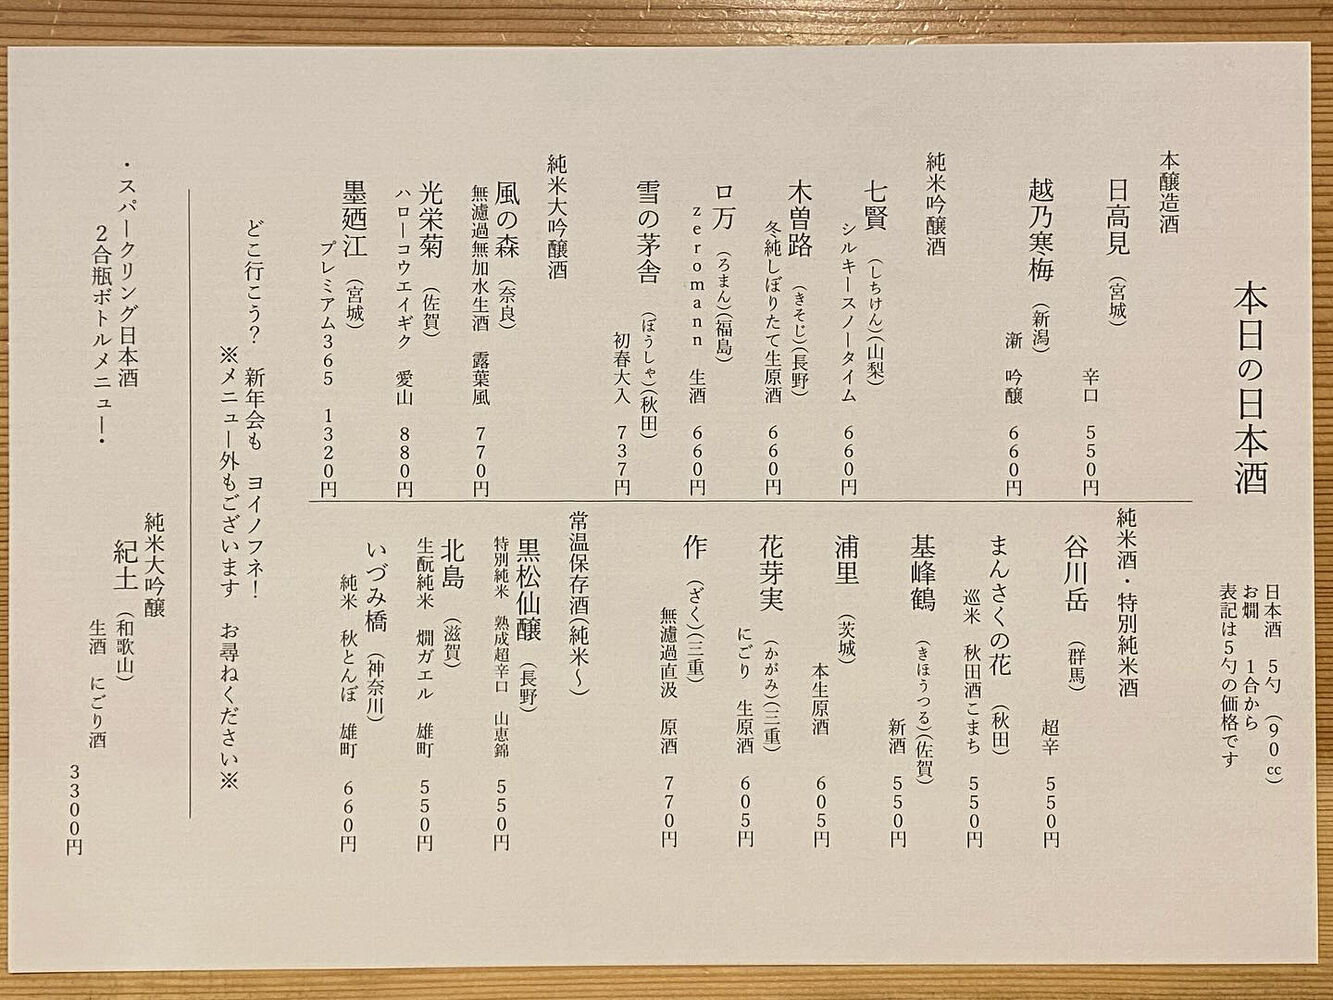 本日の日本酒
日本酒 5勺 (90㏄)
お燗 1合から
表記は5勺の価格です
本醸造酒
日高見 (宮城)
辛口 550円
越乃寒梅 (新潟)
漸 吟醸 660円
純米吟醸酒
七賢 (しちけん)(山梨)
シルキースノータイム 660円
木曽路 (きそじ)(長野)
冬純しぼりたて生原酒 660円
ロ万 (ろまん)(福島)
zeromann 生酒 660円
雪の茅舎 (ぼうしゃ)(秋田)
初春大入 737円
純米大吟醸酒
風の森 (奈良)
無濾過無加水生酒 露葉風 770円
光栄菊 (佐賀)
ハローコウエイギク 愛山 880円
墨廼江 (宮城)
プレミアム365 1320円
純米酒・特別純米酒
谷川岳 (群馬)
超辛 550円
まんさくの花 (秋田)
巡米 秋田酒こまち 550円
基峰鶴 (きほうつる)(佐賀)
新酒 550円
浦里 (茨城)
本生原酒 605円
花芽実 (かがみ)(三重)
にごり 生原酒 605円
作 (ざく)(三重)
無濾過直汲 原酒 770円
常温保存酒(純米～)
黒松仙醸 (長野)
特別純米 熟成超辛口 山恵錦 550円
北島 (滋賀)
生酛純米 燗ガエル 雄町 550円
いづみ橋 (神奈川)
純米 秋とんぼ 雄町 660円
どこ行こう？ 新年会も ヨイノフネ！
※メニュー外もございます お尋ねください※
・スパークリング日本酒
2合瓶ボトルメニュー・
純米大吟醸
紀土 (和歌山)
生酒 にごり酒
3300円